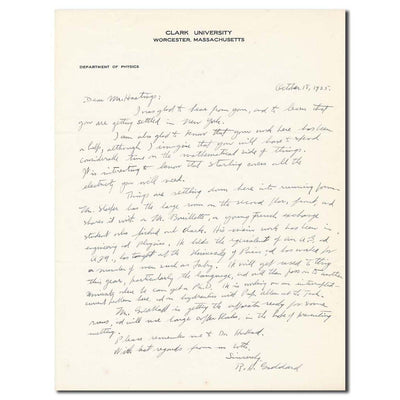 CLARK UNIVERSITY
WORCESTER, MASSACHUSETTS
DEPARTMENT OF PHYSICS
October 18, 1935.
Dear Mr. Hastings:
I was glad to hear from you, and to learn that
you are getting settled in New York.
I am also glad to know that your work here has been
a help, although I imagine that you will have to spend
considerable time on the mathematical side of things.
It is interesting to know that Starling covers all the
electricity you will need.
Things are settling down here into running form.
Mr. has the large room on the second floor, and
shares it with a Mr. a young French exchange
student who picked out Clark. His main work has been in
engineering and Physics. He holds the equivalent of an and
has taught at the University of and has worked for
a number of men such as He will get used to things
this year, particularly the language, and will then pass on to another
University where he can get a Ph.D. He is working on an
current problem here, and on with Prof. and Mr.
Mr. is getting the apparatus ready for some
and will use large in the hope of
anything.
Please remember me to Dr.
With best regards from us both,
Sincerely,
R. H. Goddard